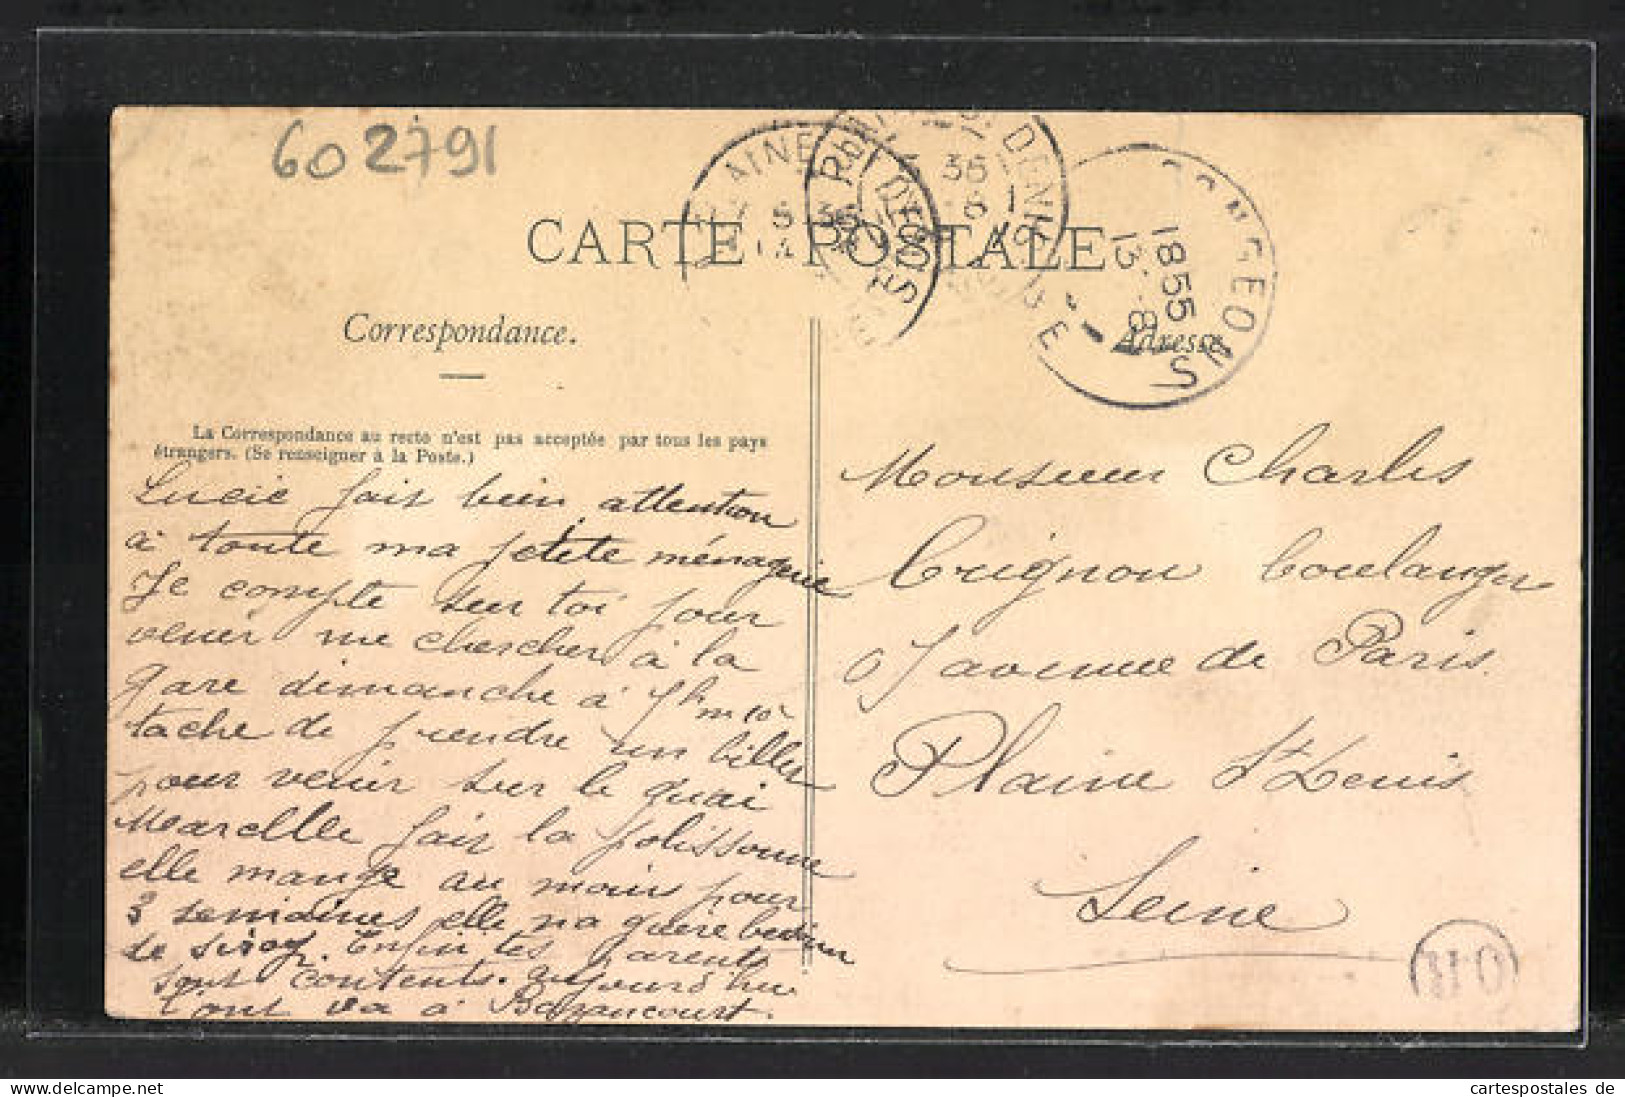 602791
CARTE POSTALE
Correspondance.
Adresse
La Correspondance au recto n'est pas acceptée par tous les pays
étrangers. (Se renseigner à la Poste.)
Lucie fais bien attention
à toute ma petite ménagerie
Je compte sur toi pour
venir me chercher à la
gare dimanche à 7h m 10
tache de prendre un billet
pour venir sur le quai
Marcelle fais la polissonne
elle mange au moins pour
3 semaines elle n'a guère besoin
de sirop. Enfin tes parents
sont contents. aujourd'hui
l'ont va à Bazancourt.
Monsieur Charles
Crignon boulanger
avenue de Paris
Plaine St Denis
Seine
PLAINE ST DENIS
3 36
6
1855
13 - 8
S